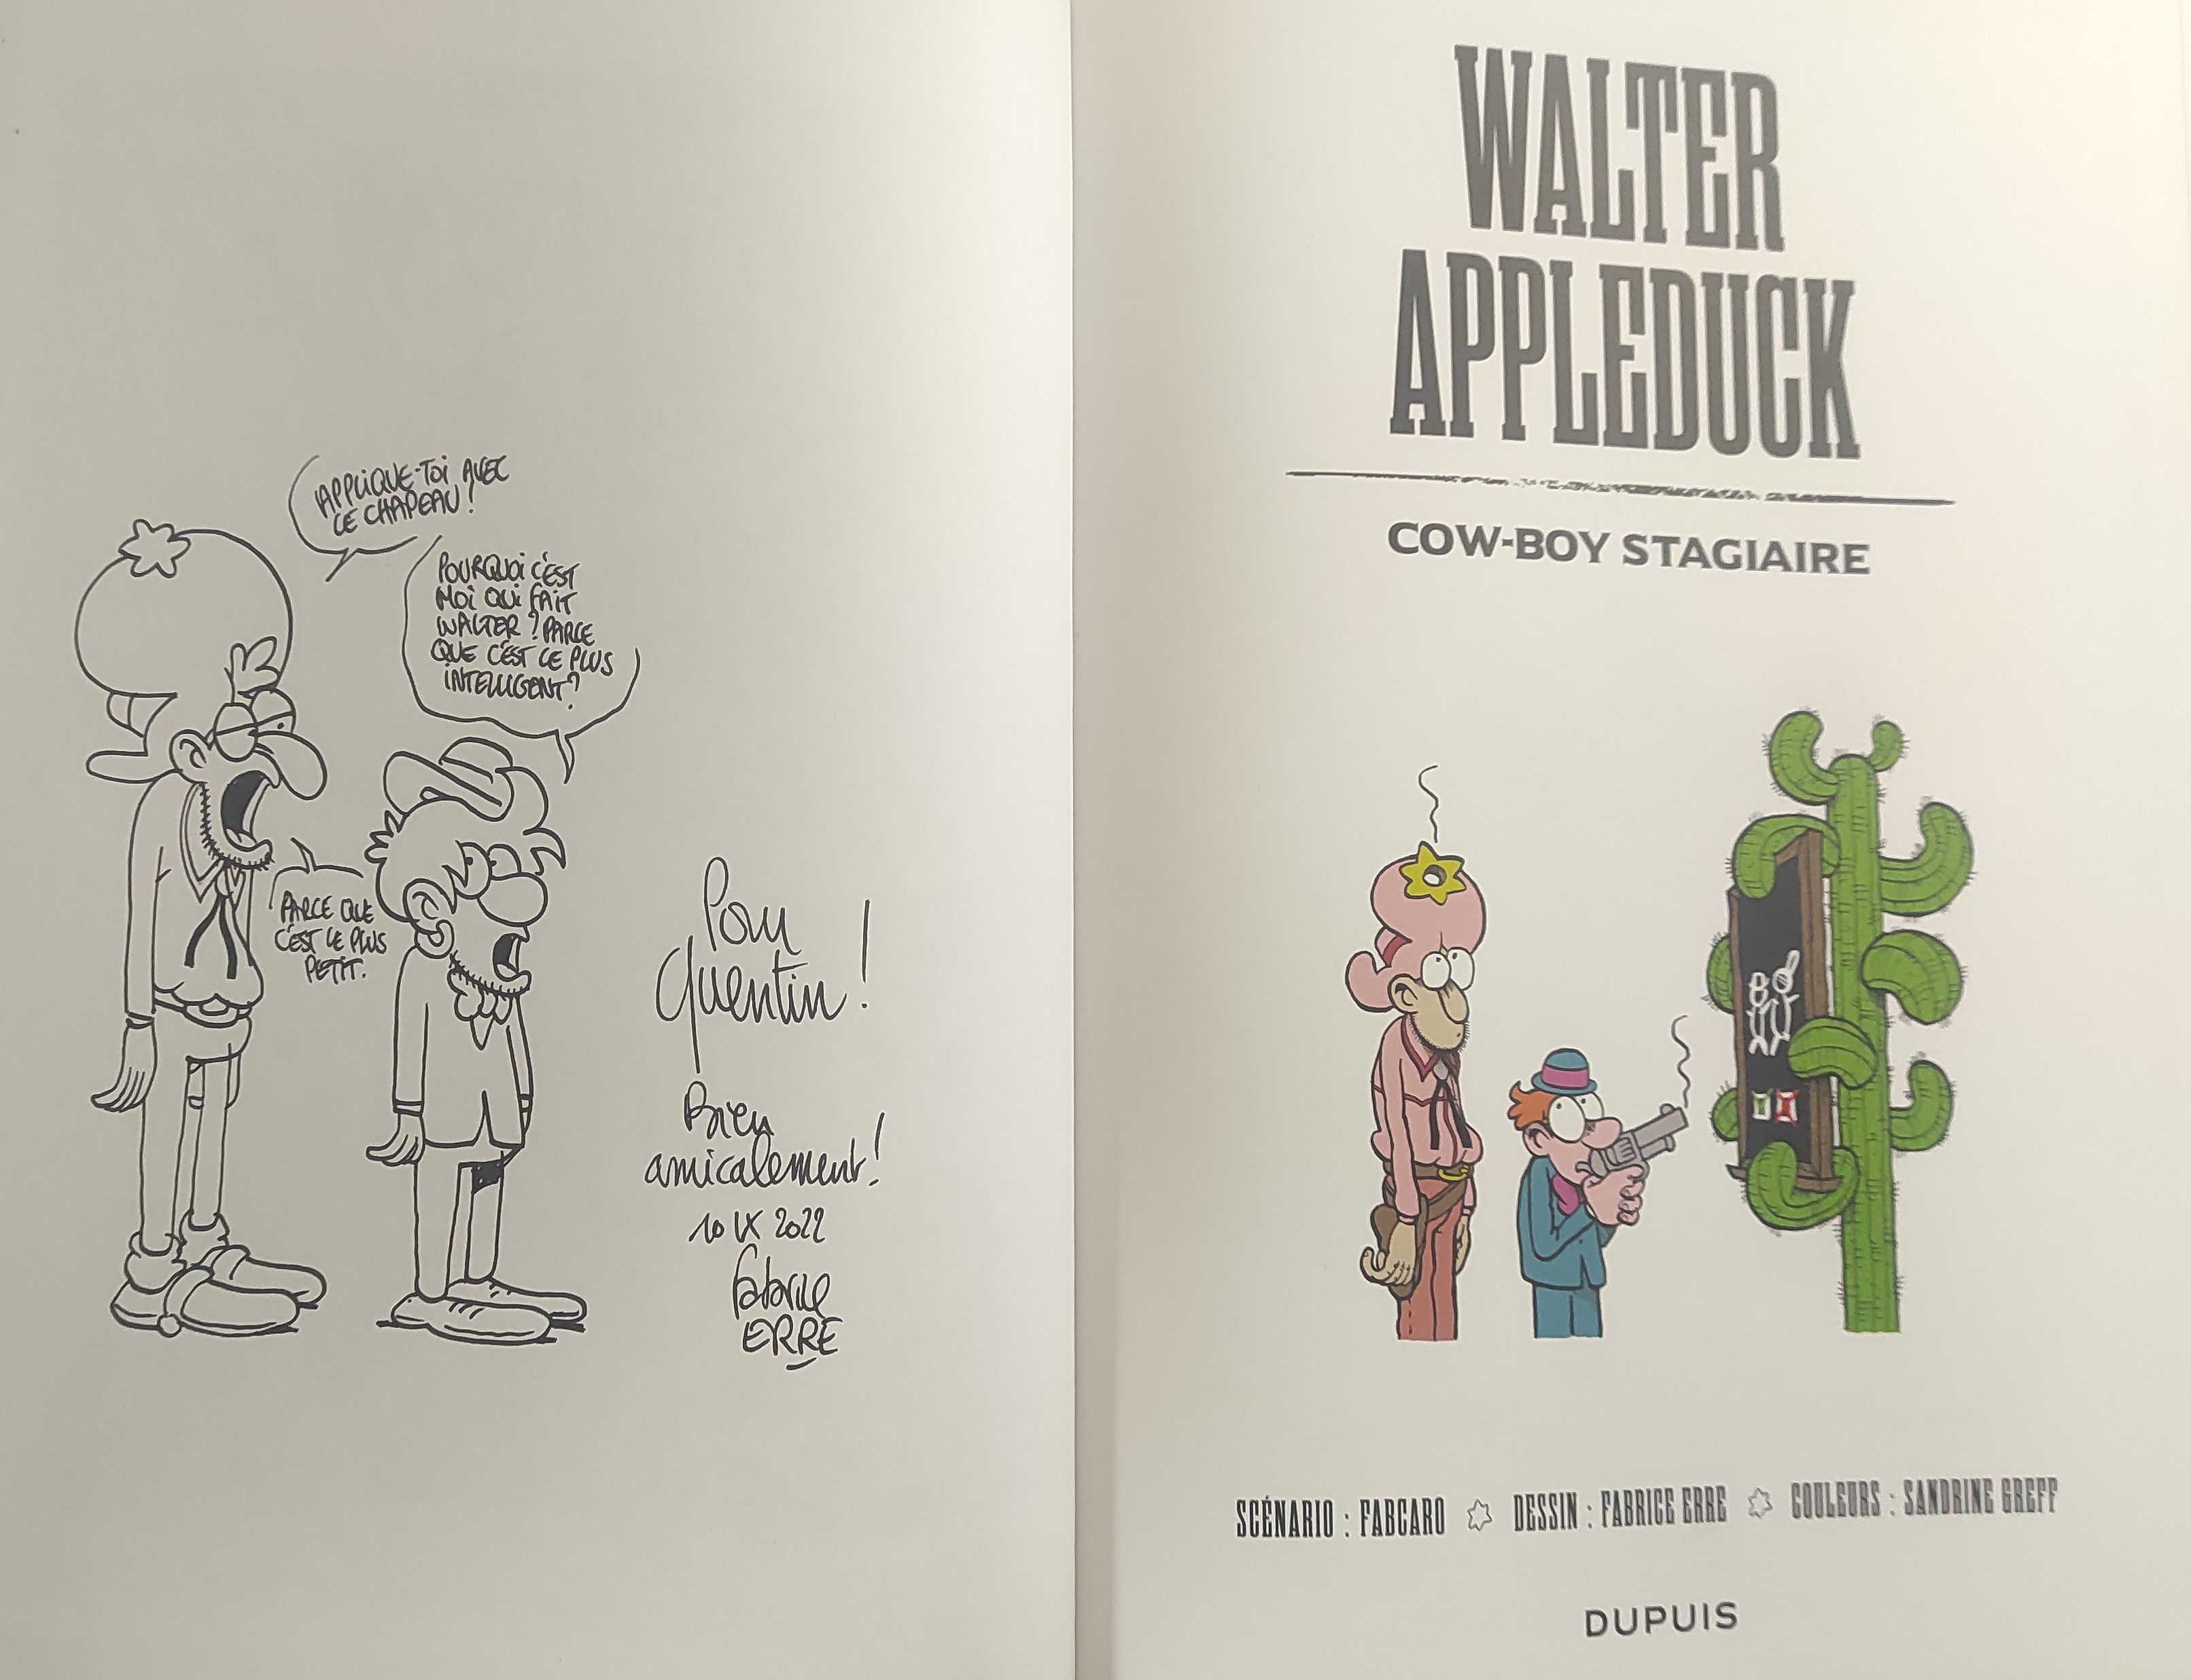 APPLIQUE-TOI AVEC
LE CHAPEAU !
POURQUOI C'EST
MOI QUI FAIT
WALTER ? PARCE
QUE C'EST LE PLUS
INTELLIGENT ?
PARCE QUE
C'EST LE PLUS
PETIT.
Pour
Quentin !
Bien
amicalement !
10 IX 2022
Fabrice
ERRE
WALTER
APPLEDUCK
COW-BOY STAGIAIRE
SCÉNARIO : FABCARO DESSIN : FABRICE ERRE COULEURS : SANDRINE GREFF
DUPUIS